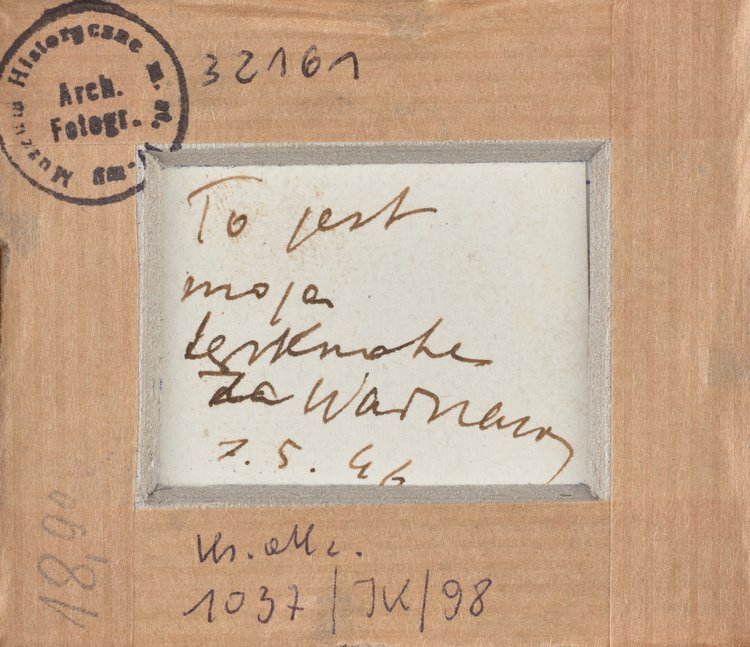 Muzeum Historyczne m. st. W-wy
Arch.
Fotogr.
32161
To jest
moja
tęsknota
za Warszawą
7.5.46
1037/JK/98